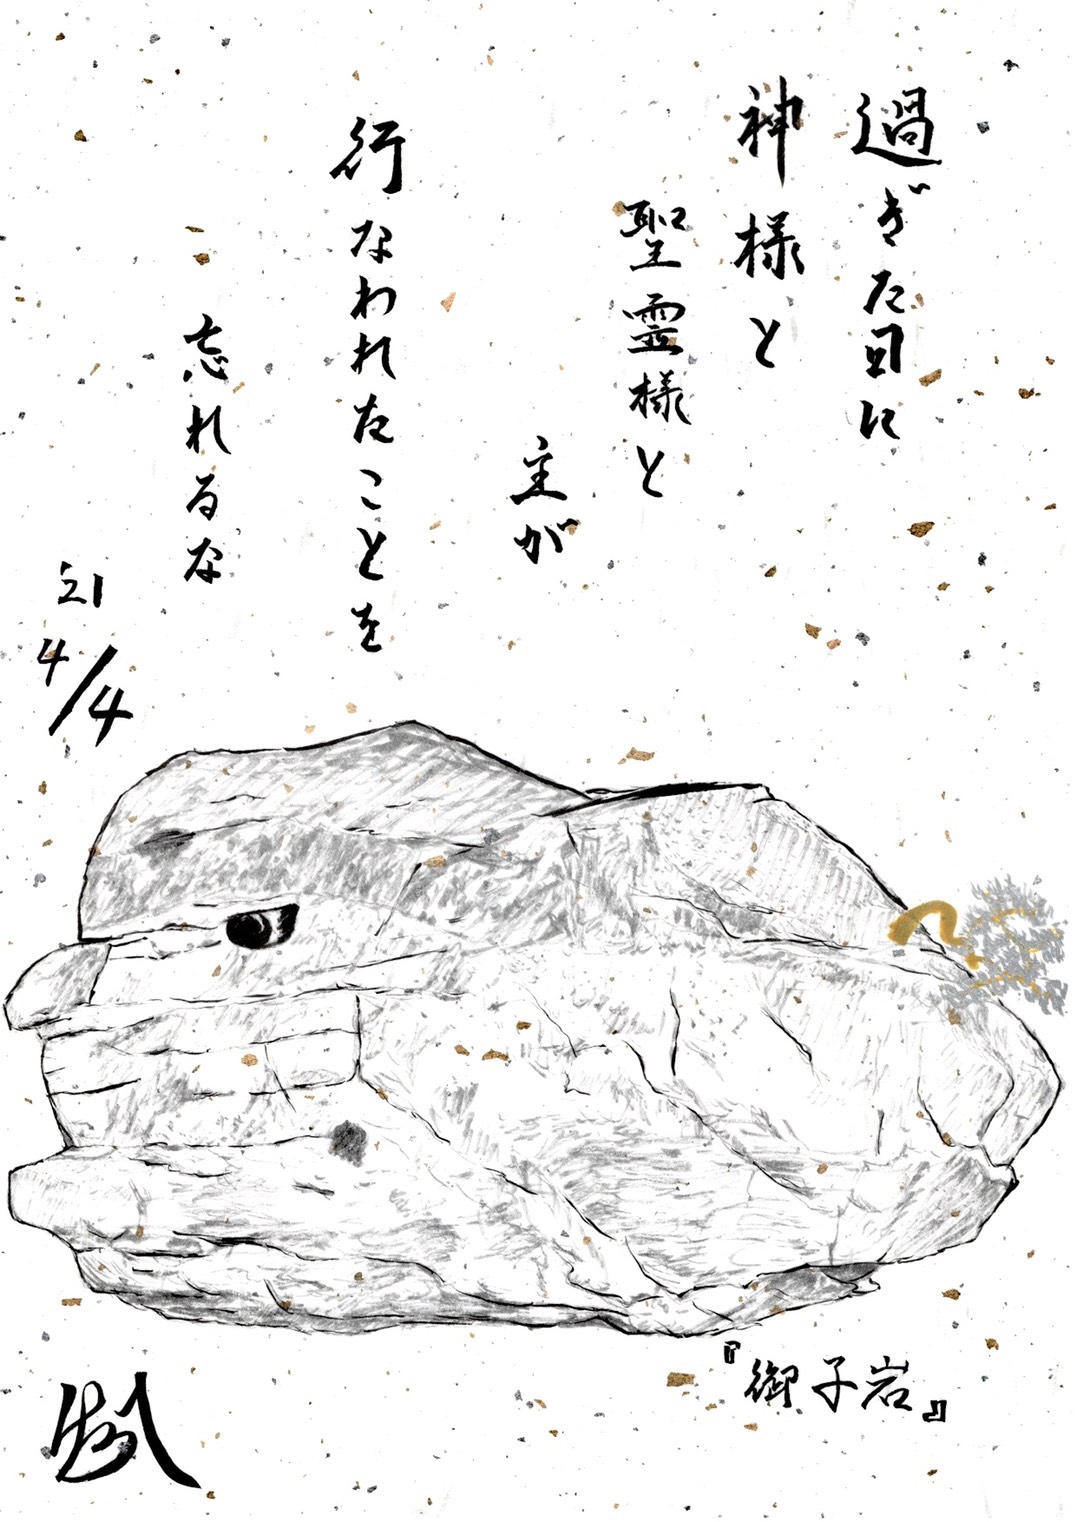 過ぎた日に
神様と
聖霊様と
主が
行なわれたことを
忘れるな
'21
4/4
『御子岩』